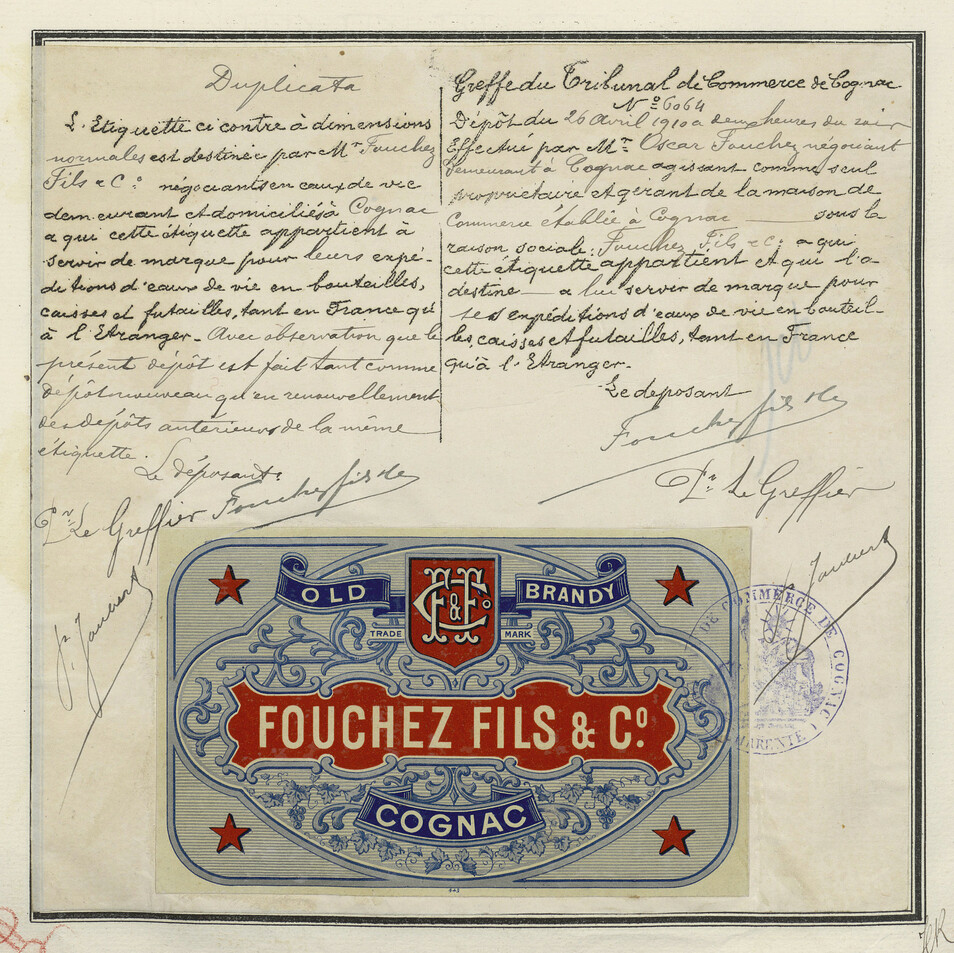 Duplicata
L'Etiquette ci contre à dimensions
normales est destinée par Mr Fouchez
Fils & Co. négociants en eaux de vie
demeurant et domiciliés à Cognac
a qui cette étiquette appartient à
servir de marque pour leurs expé-
ditions d'eaux de vie en bouteilles,
caisses et futailles, tant en France qu'
à l'Etranger. Avec observation que le
présent dépôt est fait tant comme
dépôt nouveau qu'en renouvellement
des dépôts antérieurs de la même
étiquette.
Le déposant.
Fouchez fils & Co
Pr Le Greffier
Greffe du Tribunal de Commerce de Cognac
No 6064
Dépôt du 26 Avril 1910 à deux heures du soir
Effectué par Mr Oscar Fouchez négociant
demeurant à Cognac agissant comme seul
propriétaire et gérant de la maison de
Commerce établie à Cognac sous la
raison sociale: Fouchez Fils & Co a qui
cette étiquette appartient et qui l'a
destine a lui servir de marque pour
ses expéditions d'eaux de vie en bouteil-
les, caisses et futailles, tant en France
qu'à l'Etranger.
Le deposant
Fouchez fils & Co
Pr Le Greffier
OLD BRANDY
F&Co
TRADE MARK
FOUCHEZ FILS & Co.
COGNAC
DE COMMERCE DE COGNAC